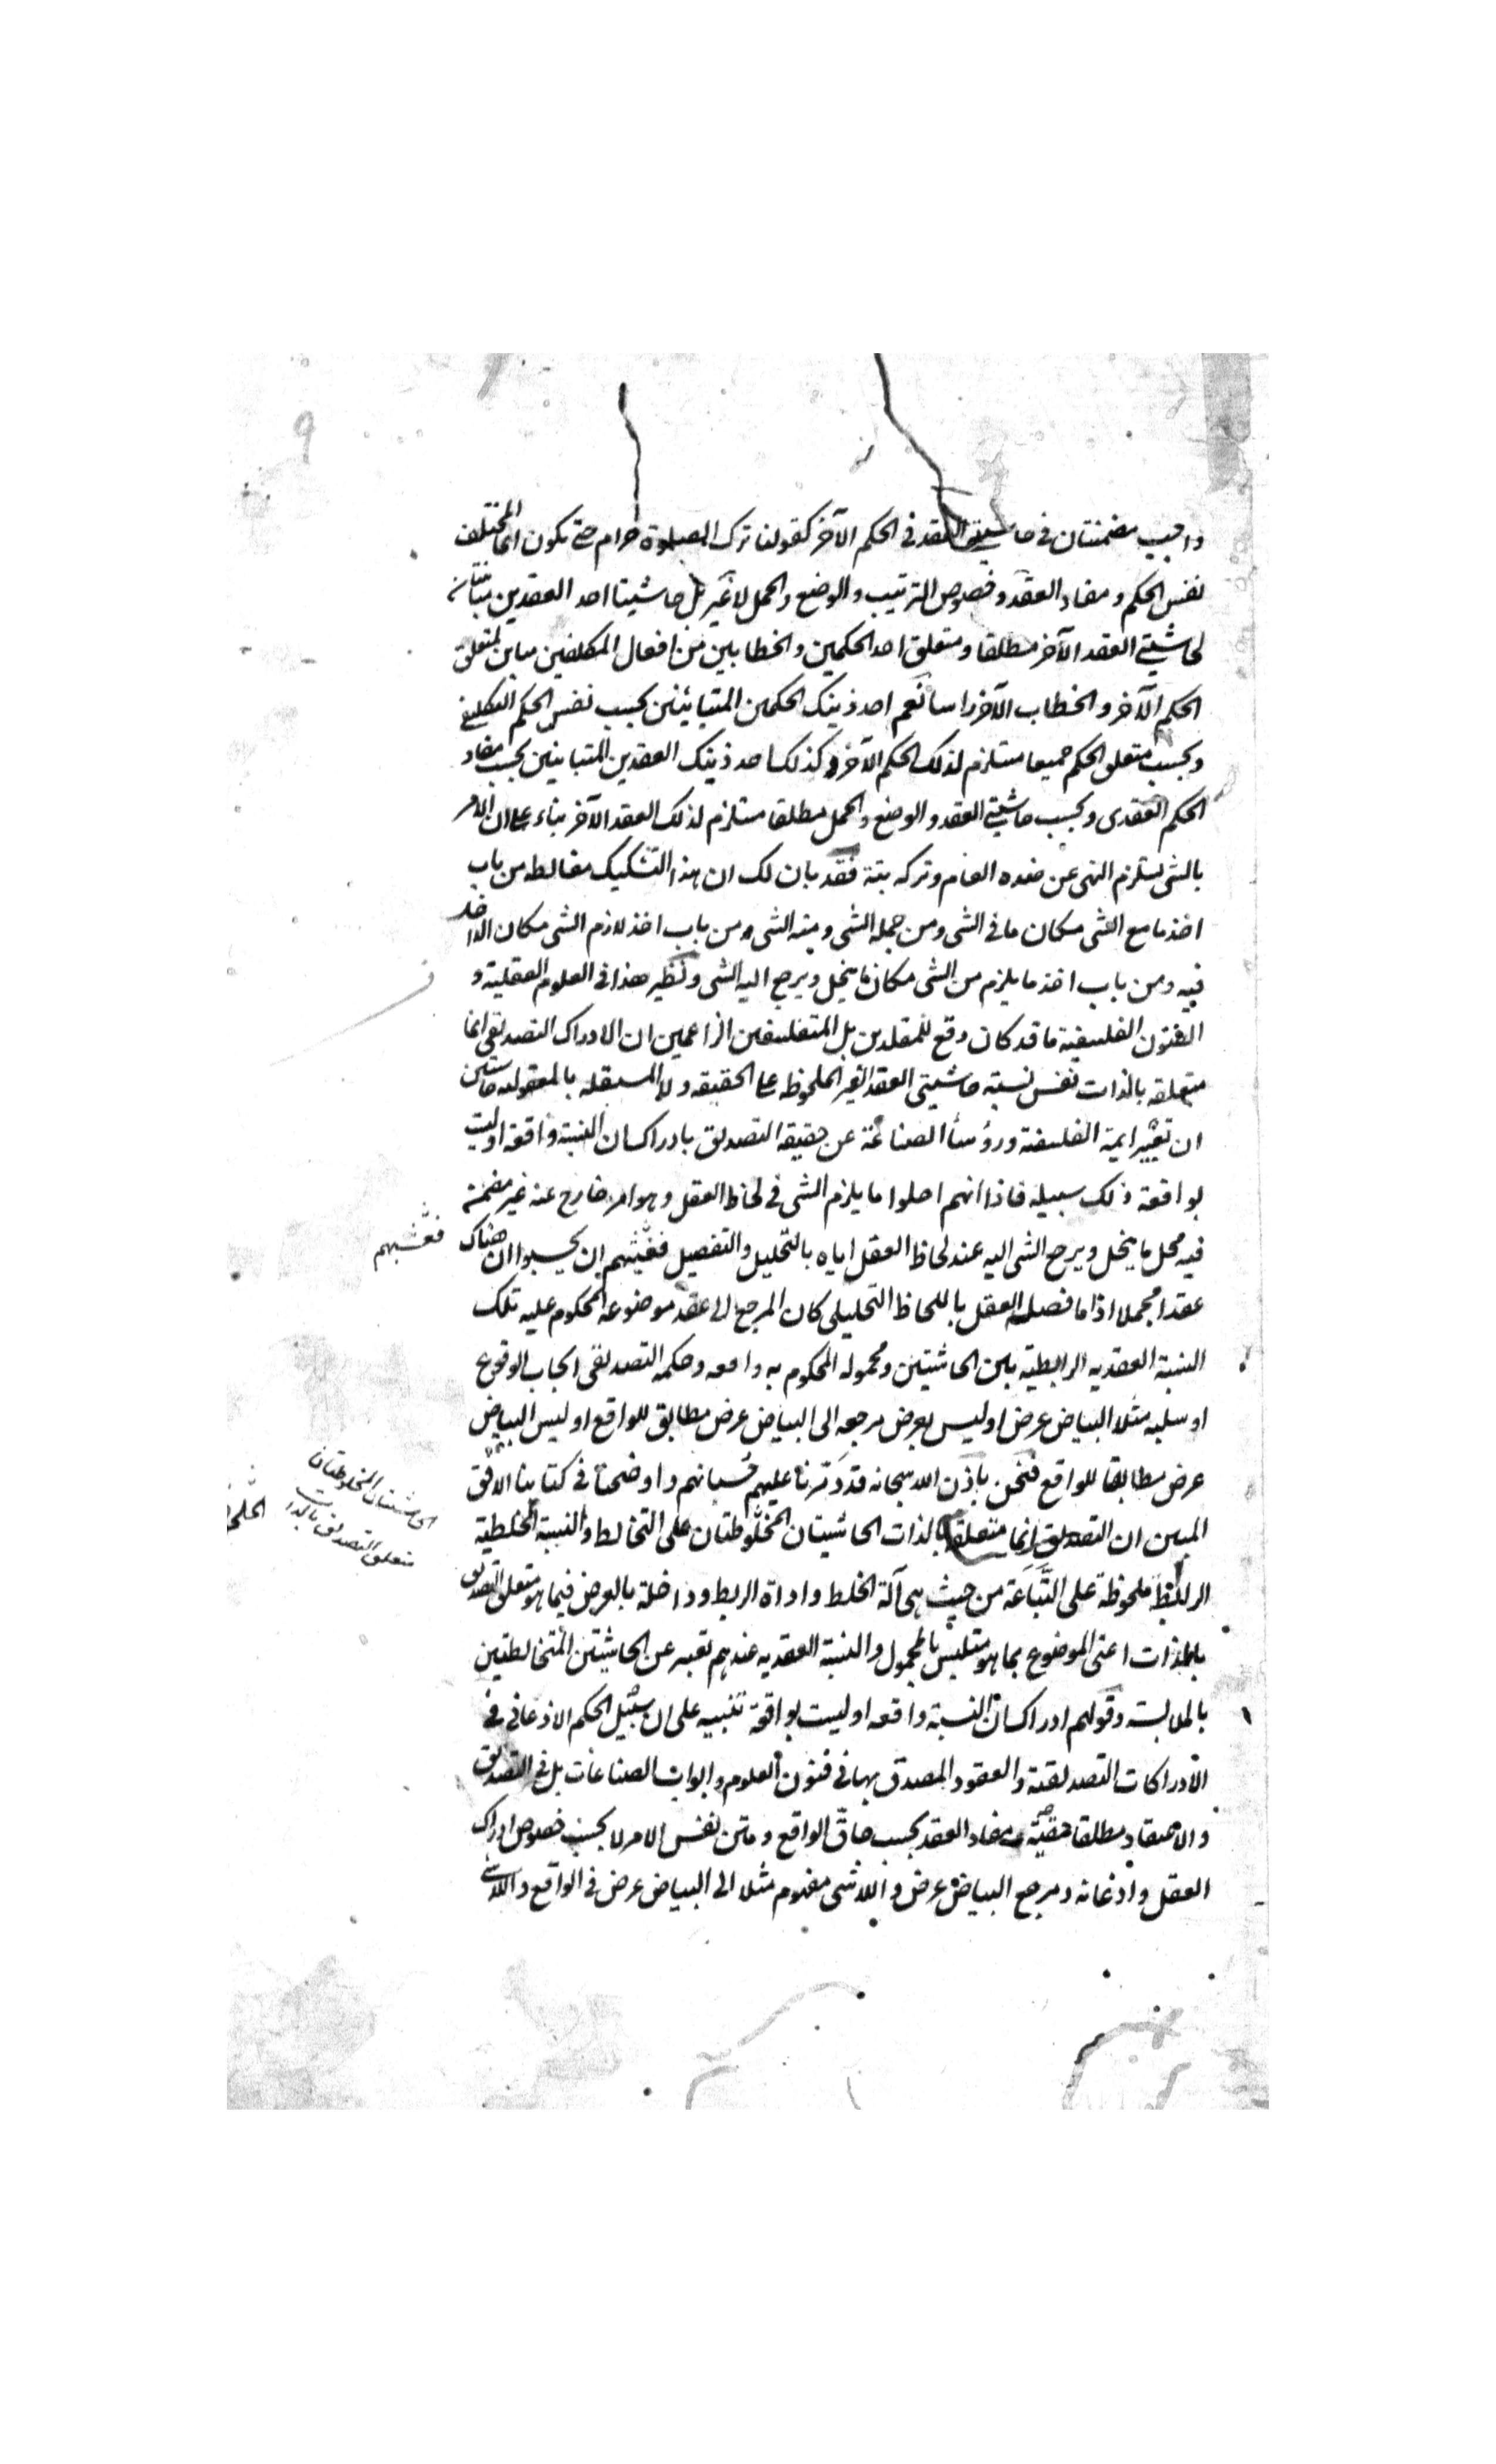 واجب مضمنتان في حاشيتي العقد في الحكم الآخر كقولنا ترك الصلوة حرام حتى يكون انما المختلف
نفس الحكم و مفاد العقد و خصوص الترتيب و الوضع و الحمل لا غير بل حاشيتا احد العقدين متباينة
لحاشيتي العقد الآخر مطلقا و متعلق احد الحكمين و الخطابين من افعال المكلفين مباين لمتعلق
الحكم الآخر و الخطاب الآخر راسا نعم احد ذينك الحكمين المتباينين بحسب نفس الحكم التكليفي
و بحسب متعلق الحكم جميعا مستلزم لذلك الحكم الآخر و كذلك احد ذينك العقدين المتباينين بحسب مفاد
الحكم العقدى و بحسب حاشيتي العقد و الوضع و الحمل مطلقا مستلزم لذلك العقد الآخر بناء على ان الامر
بالشى يستلزم النهى عن ضده العام و تركه بتة فقد بان لك ان هذا التشكيك مغالطه من باب
اخذ ما مع الشى مكان ما في الشى و من جملة الشى و منه الشى و من باب اخذ لازم الشى مكان الداخل
فيه و من باب اخذ ما يلزم من الشى مكان ما ينحل و يرجع اليه الشى و نظير هذا في العلوم العقلية و
الفنون الفلسفية ما قد كان وقع للمقلدين بل المتفلسفين الزاعمين ان الادراك التصديقى انما
متعلقه بالذات نفس نسبة حاشيتى العقد الغير الملحوظه على الحقيقه و لا المستقله بالمعقوليه حاسبين
ان تعبير ايمة الفلسفة و رؤسأ الصناعة عن حقيقة التصديق بادراك ان النسبة واقعة او ليست
بواقعة ذلك سبيله فاذا انهم احلوا ما يلزم الشى في لحاظ العقل و هو امر خارج عنه غير مضمنة
فيه محل ما ينحل و يرجع الشى اليه عند لحاظ العقل اياه بالتحليل و التفصيل فغشيهم ان يحسبوا ان هناك
فغشيهم
عقدا مجملا اذا ما فصله العقل باللحاظ التحليلى كان المرجع الى عقد موضوعه المحكوم عليه تلك
النسبة العقديه الرابطية بين الحاشيتين و محموله المحكوم به واقعه و حكمه التصديقى ايجاب الوقوع
او سلبه مثلا البياض عرض او ليس بعرض مرجعه الى البياض عرض مطابق للواقع او ليس البياض
عرض مطابقا للواقع فنحن باذن الله سبحانه قد دمرنا عليهم حسبانهم و اوضحنا في كتابنا الافق
المبين ان التصديق انما متعلقه بالذات الحاشيتان المخلوطتان على التخالط و النسبة الخلطية
الحاشيتان المخلوطتان
متعلق التصديق بالذات
الرابطة ملحوظة على التباعة من حيث هى آلة الخلط و اداة الربط و داخلة بالعرض فيما هو متعلق التصديق
بالذات اعنى الموضوع بما هو متلبس بالمحمول و النسبة العقديه عندهم تعبر عن الحاشيتين المتخالطتين
بالملابسة و قولهم ادراك ان النسبة واقعه او ليست بواقعة تنبيه على ان سبيل الحكم الاذعانى في
الادراكات التصديقية و العقود المصدق بها في فنون العلوم و ابواب الصناعات بل في التصديق
و الاعتقاد مطلقا مفاد العقد بحسب حاق الواقع و متن نفس الامر لا بحسب خصوص ادراك
العقل و اذعانه و مرجع البياض عرض و اللاشى مفهوم مثلا الى البياض عرض في الواقع و اللاشى